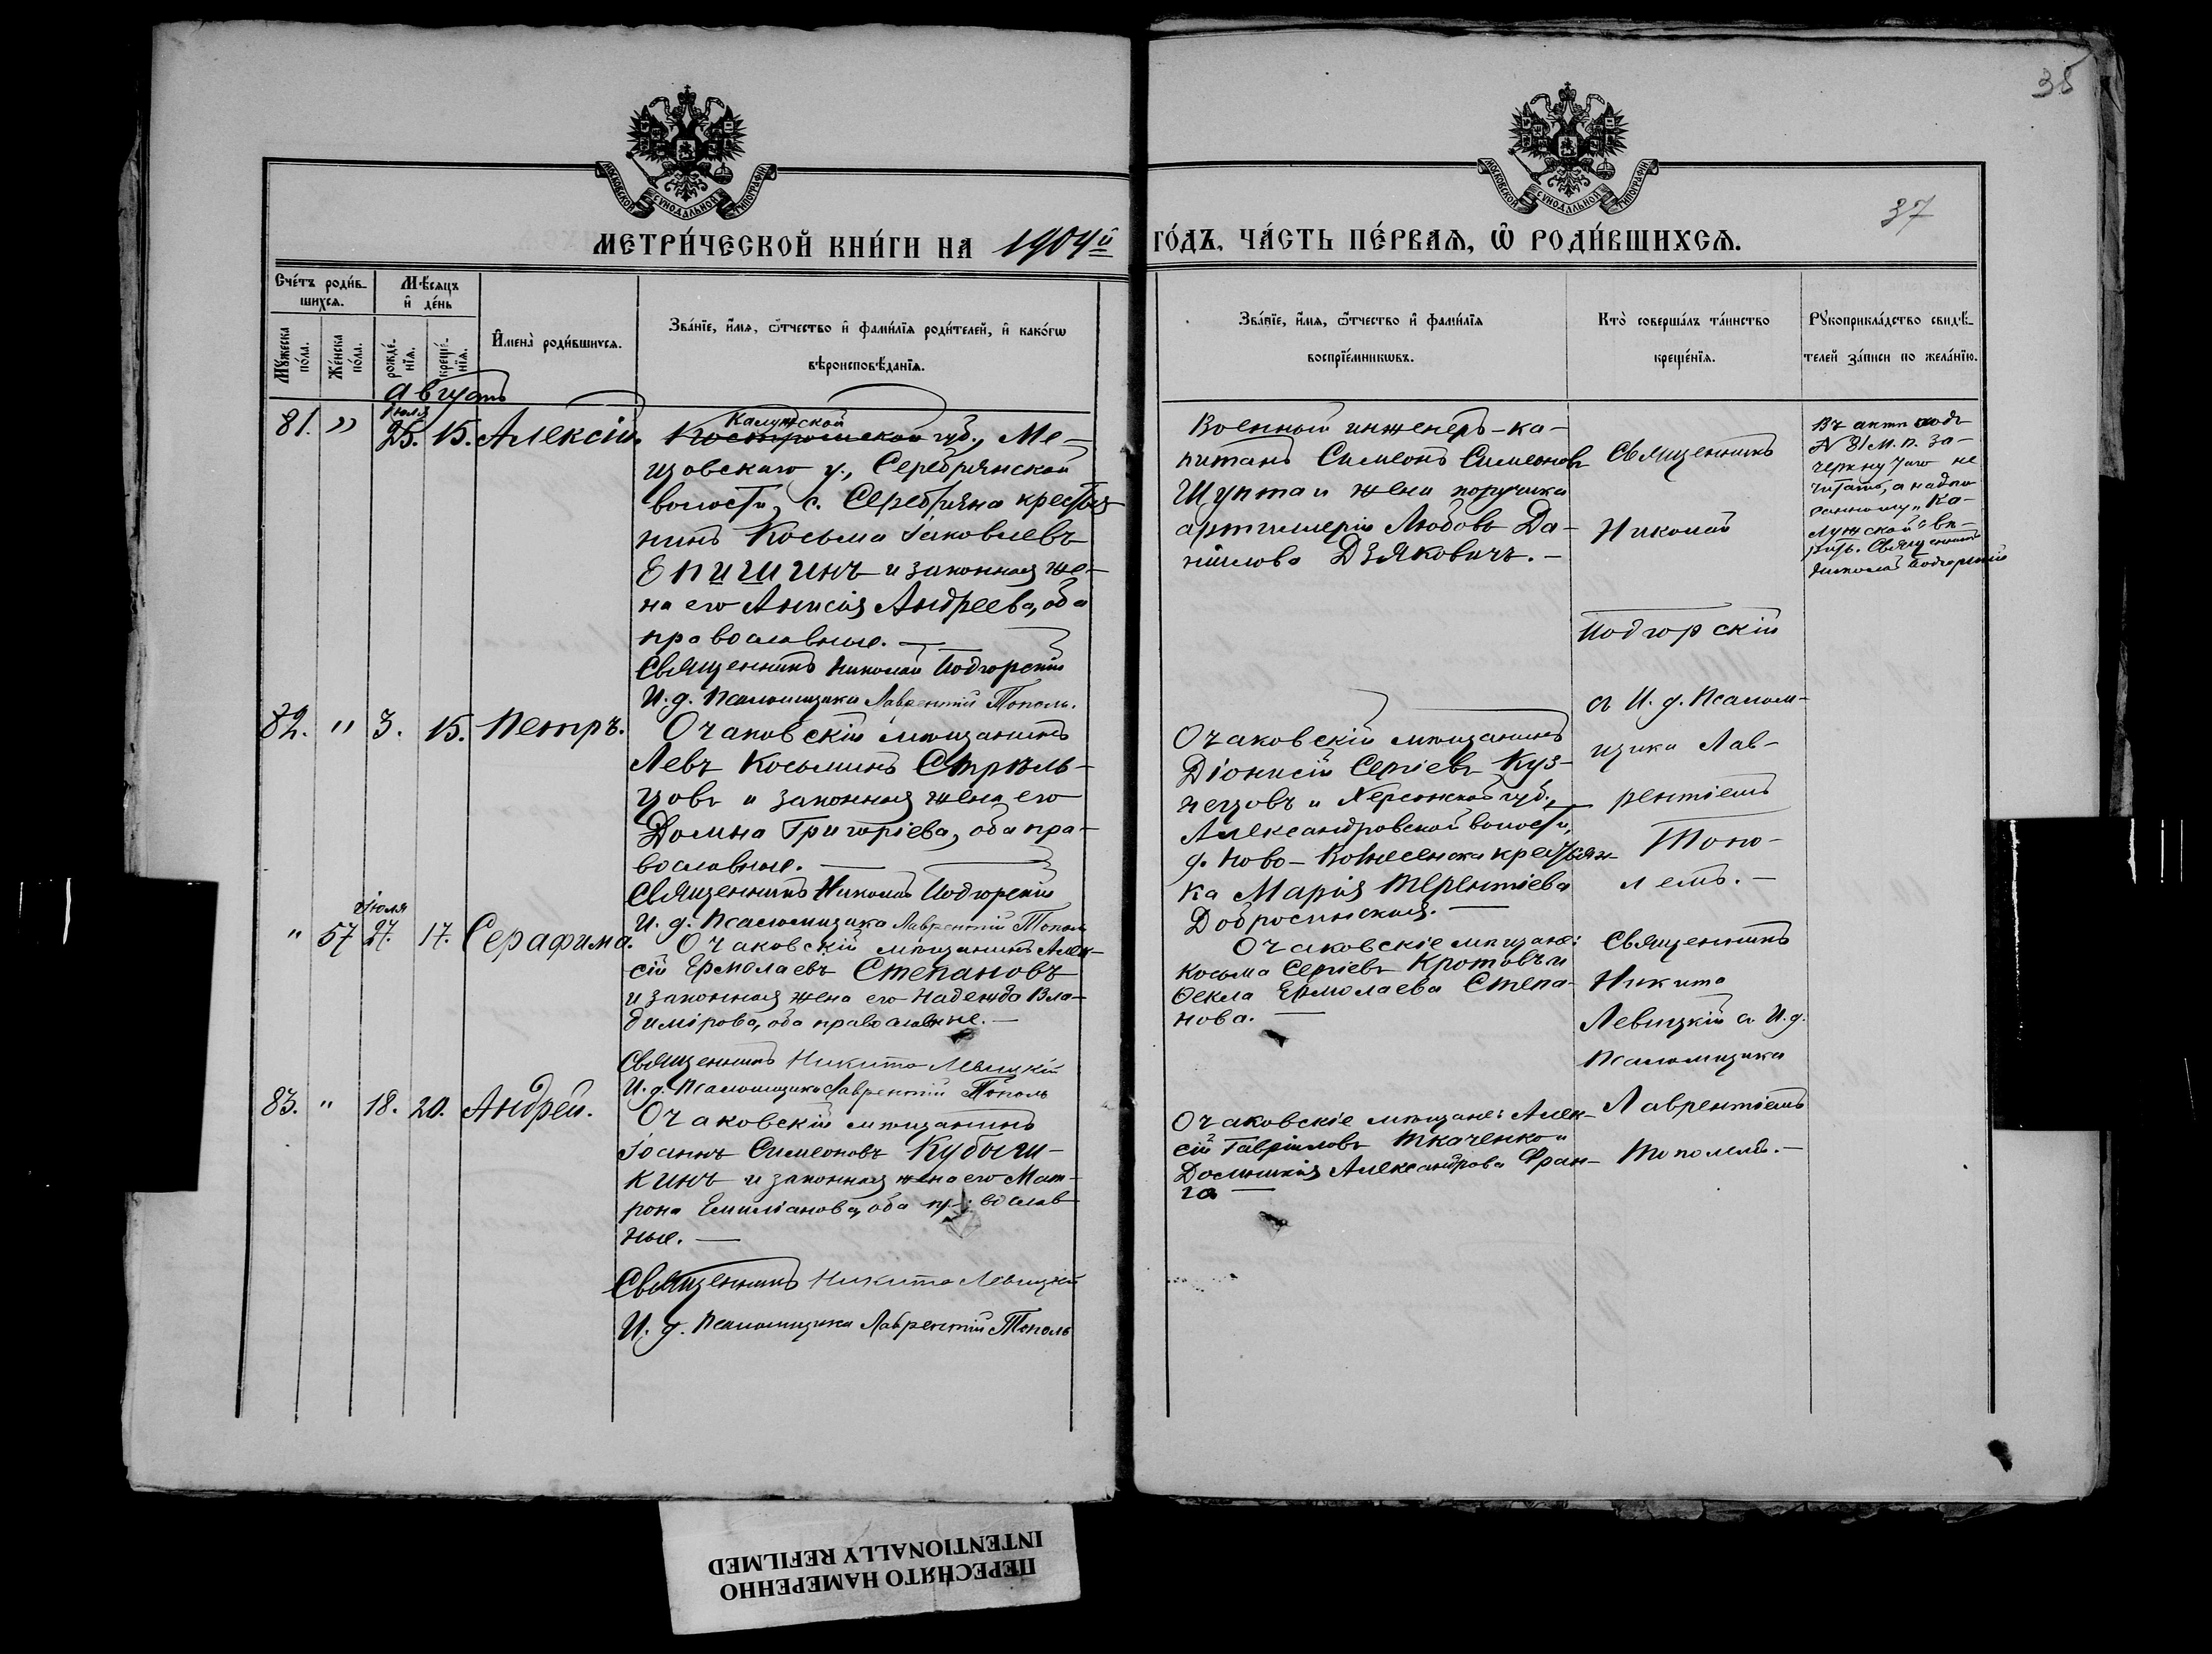 35
37
МОСКОВСКОЙ СУНОДАЛЬНОЙ ТИПОГРАФІИ
МОСКОВСКОЙ СУНОДАЛЬНОЙ ТИПОГРАФІИ
МЕТРИ́ЧЕСКОЙ КНИ́ГИ НА 1904й
ГО́ДЪ, ЧА́СТЬ ПЕ́РВАѦ, Ѿ РОДИ́ВШИХСѦ.
Сче́тъ роди́в-
шихсѧ.
Мꙋ́жеска по́ла.
Же́нска по́ла.
Мѣ́сѧцъ
и҆ де́нь
рожде́нїѧ.
креще́нїѧ.
И҆мена̀ роди́вшихсѧ.
Зва́нїе, и҆́мѧ, ѻ҆́тчество и҆ фамі́лїѧ роди́телей, и҆ како́гѡ
вѣроисповѣ́данїѧ.
Зва́нїе, и҆́мѧ, ѻ҆́тчество и҆ фамі́лїѧ
воспрїе́мникѡвъ.
Кто̀ соверша́лъ та́инство
креще́нїѧ.
Рꙋкоприкла́дство свидѣ́-
телей за́писи по жела́нїю.
Августъ
81. " Іюля 25. 15. Алексій.
Калужской
Костромской губ., Ме-
щовскаго у., Серебрянской
волости, с. Серебряна крестья-
нинъ Косьма Іаковлевъ
Епишинъ и законная же-
на его Анисія Андреева, оба
православные. —
Священникъ Николай Подгорскій
И. д. Псаломщика Лаврентій Тополь.
Военный инженеръ-ка-
питанъ Симеонъ Симеоновъ
Шупта и жена поручика
артиллеріи Любовь Да-
ніилова Дзяковичъ. —
Священникъ
Николай
Подгорскій
съ И. д. Псалом-
щика Лав-
рентіемъ
Топо-
лемъ. —
Въ акте подъ
№ 81 м. п. за-
черкнутаго не
читать, а надпи-
санному „Ка-
лужской" вѣ-
рить. Священникъ
Николай Подгорскій
82. " 3. 15. Петръ.
Очаковскій мѣщанинъ
Левъ Косьминъ Стрѣль-
цовъ и законная жена его
Домна Григоріева, оба пра-
вославные. —
Священникъ Николай Подгорскій
И. д. Псаломщика Лаврентій Тополь
Очаковскій мѣщанинъ
Діонисій Сергіевъ Куз-
нецовъ и Херсонской губ.,
Александровской волости,
д. Ново-Вознесенска крестьян-
ка Марія Терентіева
Добросинская. —
" 57 Іюля 27. 17. Серафима.
Очаковскій мѣщанинъ Алек-
сій Ермолаевъ Степановъ
и законная жена его Надежда Вла-
димірова, оба православные. —
Священникъ Никита Левицкій
И. д. Псаломщика Лаврентій Тополь
Очаковскіе мѣщане:
Косьма Сергіевъ Кротовъ и
Ѳекла Ермолаева Степа-
нова. —
Священникъ
Никита
Левицкій съ И. д.
Псаломщика
Лаврентіемъ
Тополемъ. —
83. " 18. 20. Андрей.
Очаковскій мѣщанинъ
Іоаннъ Симеоновъ Кубыш-
кинъ и законная жена его Мат-
рона Емиліанова, оба православ
ные. —
Священникъ Никита Левицкій
И. д. Псаломщика Лаврентій Тополь
Очаковскіе мѣщане: Алек-
сій Гавріиловъ Ткаченко и
Домникія Александрова Фран-
га —
ПЕРЕСНЯТО НАМЕРЕННО
INTENTIONALLY REFILMED